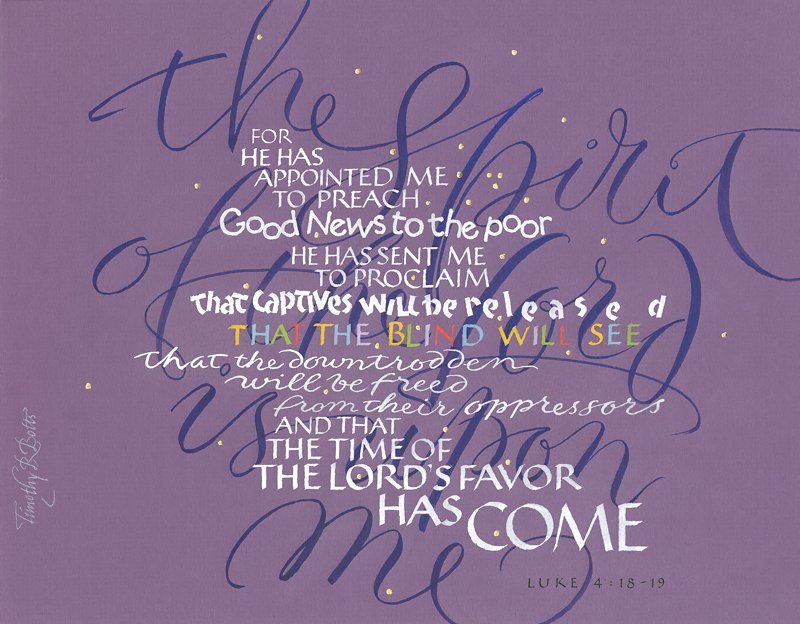 the Spirit
of the Lord
is upon
me
FOR
HE HAS
APPOINTED ME
TO PREACH
Good News to the poor
HE HAS SENT ME
TO PROCLAIM
that captives will be released
THAT THE BLIND WILL SEE
that the downtrodden
will be freed
from their oppressors
AND THAT
THE TIME OF
THE LORD'S FAVOR
HAS COME
LUKE 4:18-19
Timothy R. Botts